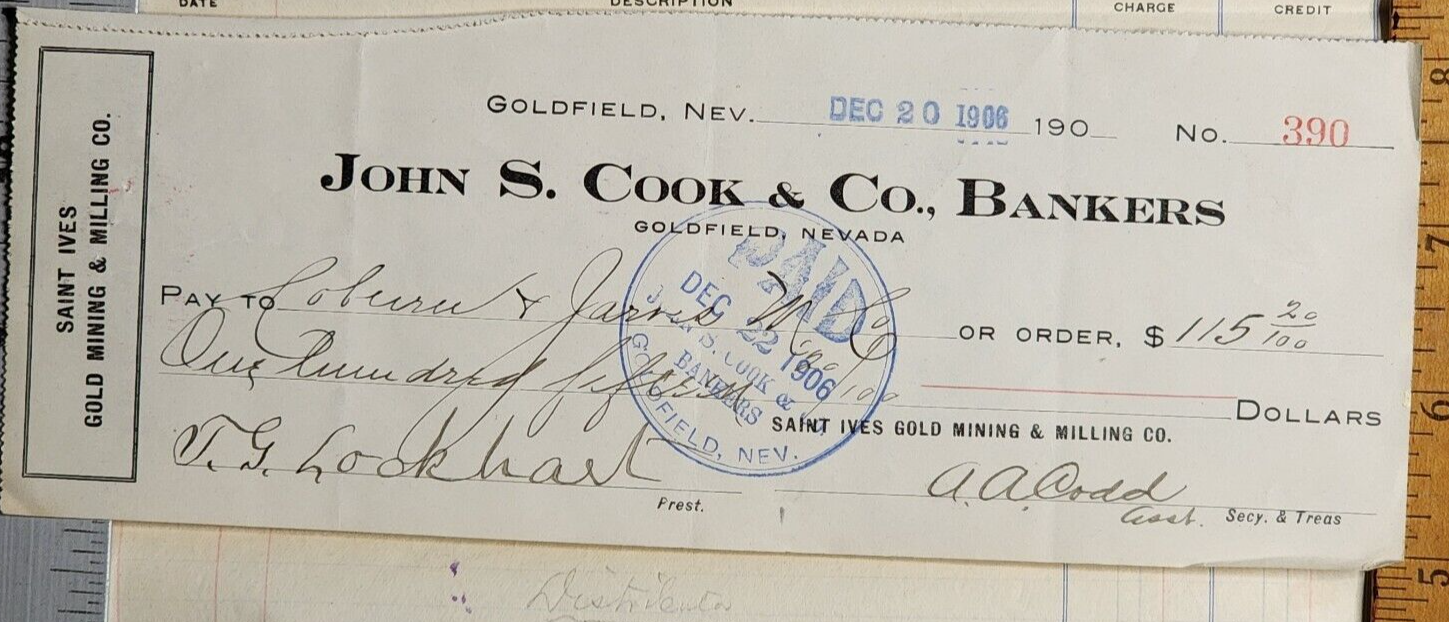 DATE DESCRIPTION CHARGE CREDIT
SAINT IVES
GOLD MINING & MILLING CO.
GOLDFIELD, NEV. DEC 20 1906 190 No. 390
JOHN S. COOK & CO., BANKERS
GOLDFIELD, NEVADA
PAY TO Coburn & Jarvis M Co OR ORDER, $ 115 20/100
One hundred fifteen 20/100 DOLLARS
PAID
DEC 22 1906
JOHN S. COOK & CO.
BANKERS
GOLDFIELD, NEV.
SAINT IVES GOLD MINING & MILLING CO.
T. G. Lockhart
Prest.
A. A. Codd
Asst. Secy. & Treas
8
7
6
5